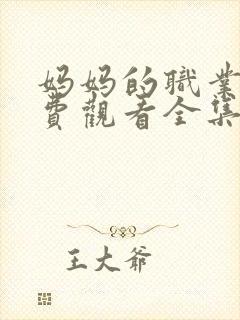 妈妈的職業
費觀看全集
王大爷